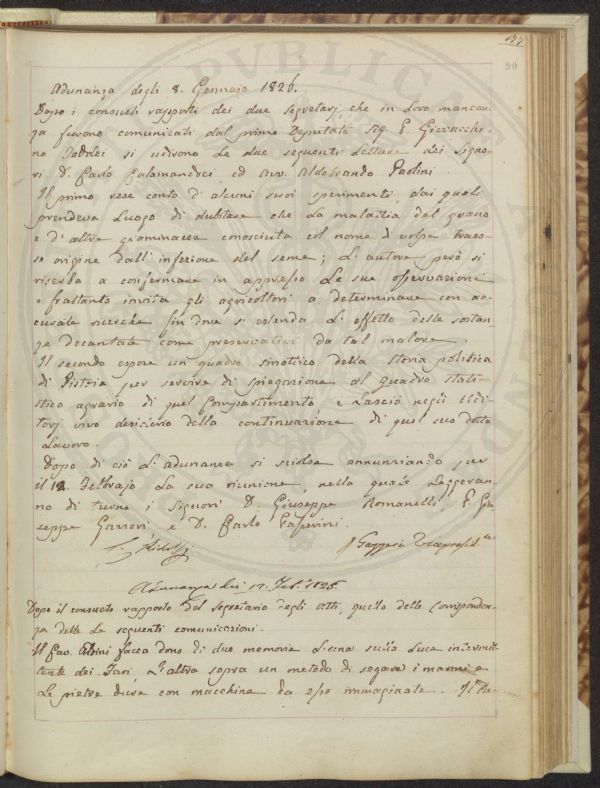 177
90
Adunanza degli 8. Gennaio 1826.
Dopo i consueti rapporti dei due Segretarj, che in loro mancan-
za furono comunicati dal primo Deputato Sig. P. Giovacchi-
no Taddei si udirono le due seguenti letture dei Signo-
ri D. Carlo Calamandrei, ed Avv. Aldobrando Paolini.
Il primo rese conto d'alcuni suoi sperimenti, dai quali
prendeva luogo di dubitare che la malattia del grano
e d'altre graminacee conosciuta col nome di volpe traes-
se origine dall'infezione del seme; L'autore però si
riserba a confermare in appresso le sue osservazioni
e frattanto invita gli agricoltori a determinare con ac-
curate ricerche fin dove si estenda l'effetto delle sostan-
ze decantate come preservativi da tal malore.
Il secondo espose un quadro sinottico della storia politica
di Pistoia per servire di spiegazione al quadro stati-
stico agrario di quel Compartimento e lasciò negli Udi-
tori vivo desiderio della continuazione di quel suo dotto
lavoro.
Dopo di ciò l'adunanza si sciolse annunziando per
il 12 Febbrajo la sua riunione, nella quale leggeran-
no di turno i Signori D. Giuseppe Romanelli, P. Giu-
seppe e D. Carlo
Adunanza dei 12. Feb. 1826.
Dopo il consueto rapporto del Segretario degli atti, quello delle Corrisponden-
ze dette le seguenti comunicazioni.
Il Cav. Aldini facea dono di due memorie L'una sulla luce intermit-
tente dei Fari, l'altra sopra un metodo di segare i marmi e
le pietre dure con macchine da esso immaginate. Il